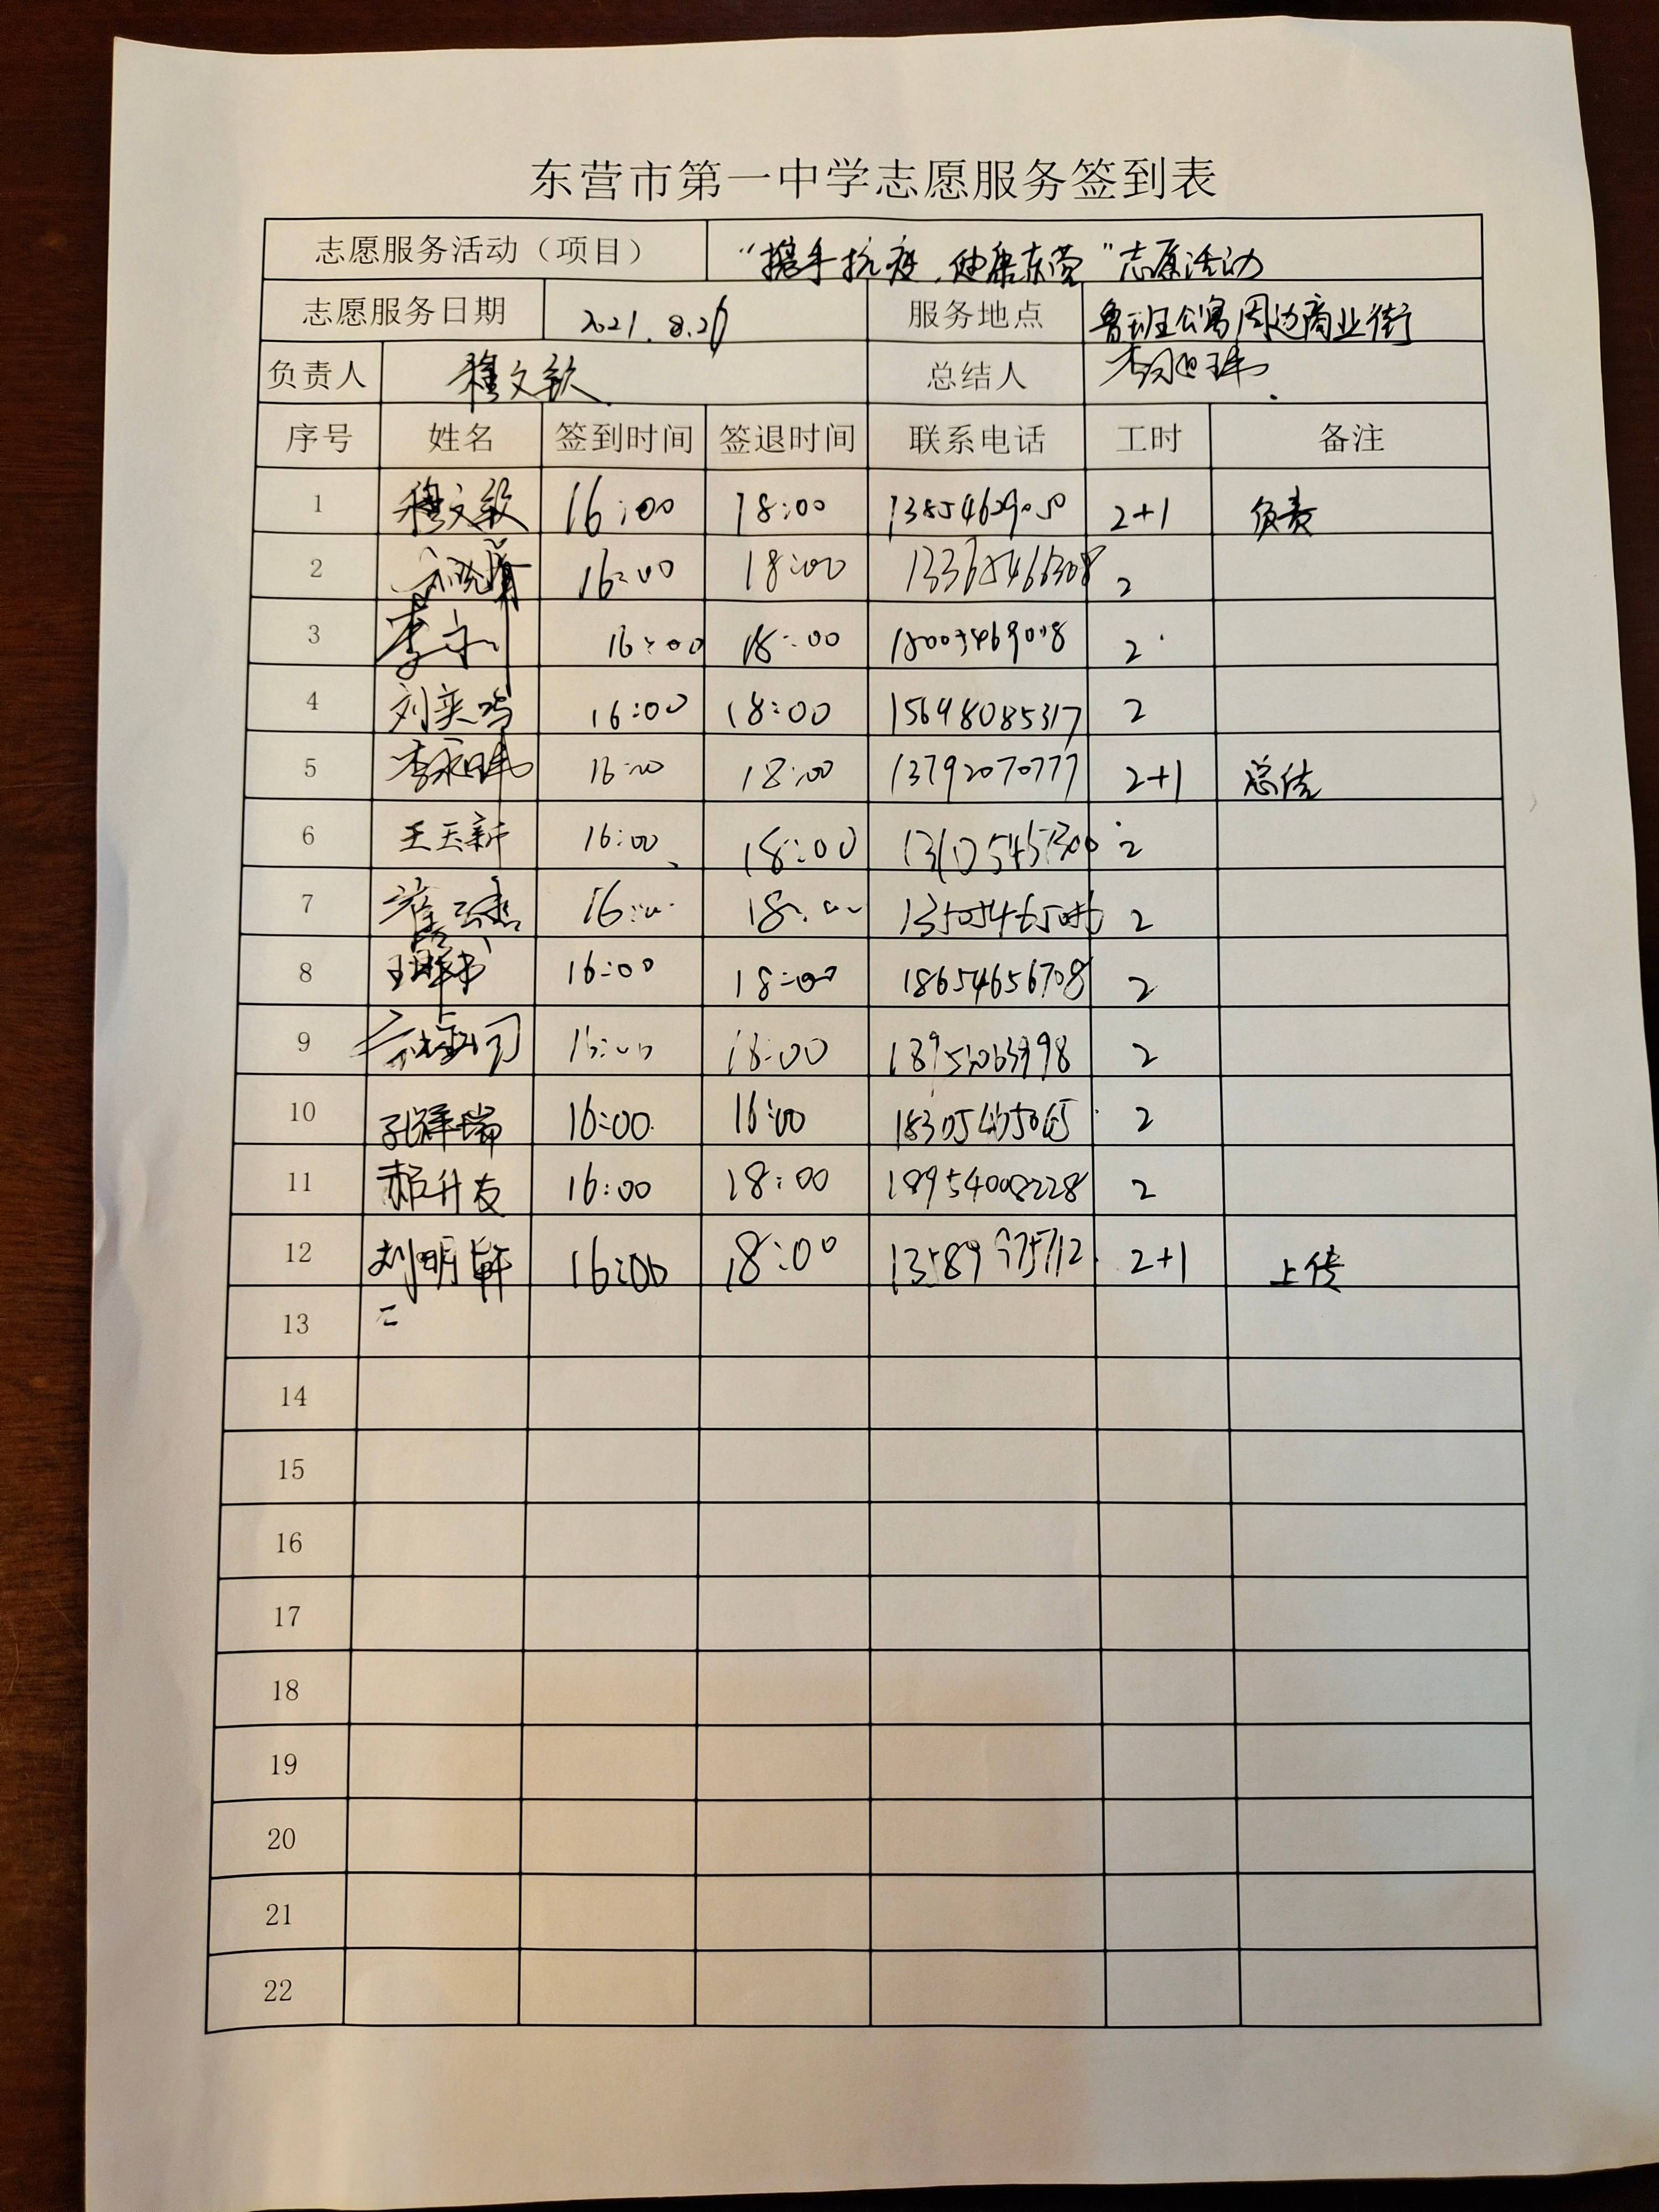 东营市第一中学志愿服务签到表
志愿服务活动（项目） “携手抗疫，健康东营”志愿活动
志愿服务日期 2021.8.26 服务地点 鲁班公寓周边商业街
负责人 穆文敏 总结人
序号 姓名 签到时间 签退时间 联系电话 工时 备注
1 穆文敏 16:00 18:00 13854629050 2+1 负责
2 16:00 18:00 2
3 16:00 18:00 2
4 16:00 18:00 15698085317 2
5 16:00 18:00 13792070777 2+1 总结
6 王玉新 16:00 18:00 2
7 16:00 18:00 2
8 16:00 18:00 18654656708 2
9 16:00 18:00 2
10 孔祥瑞 16:00 16:00 2
11 郝升友 16:00 18:00 18954008228 2
12 刘明轩 16:00 18:00 13589975712 2+1 上传
13
14
15
16
17
18
19
20
21
22